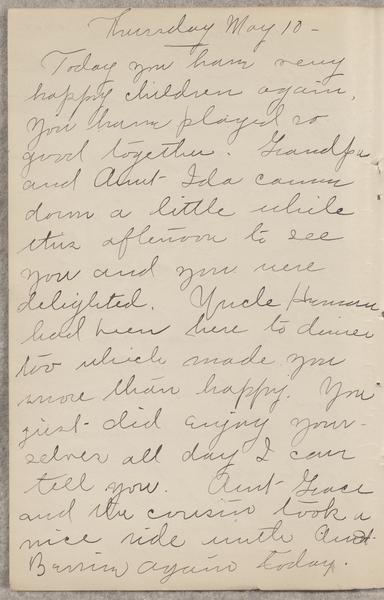 Thursday May 10 -
Today you have very
happy children again,
you have played so
good together. Grandpa
and Aunt Ida came
down a little while
this afternoon to see
you and you were
delighted. Uncle Herman
had been here to dinner
too which made you
more than happy. You
just did enjoy your-
selves all day I can
tell you. Aunt Grace
and the cousin took a
nice ride with Aunt
again today.